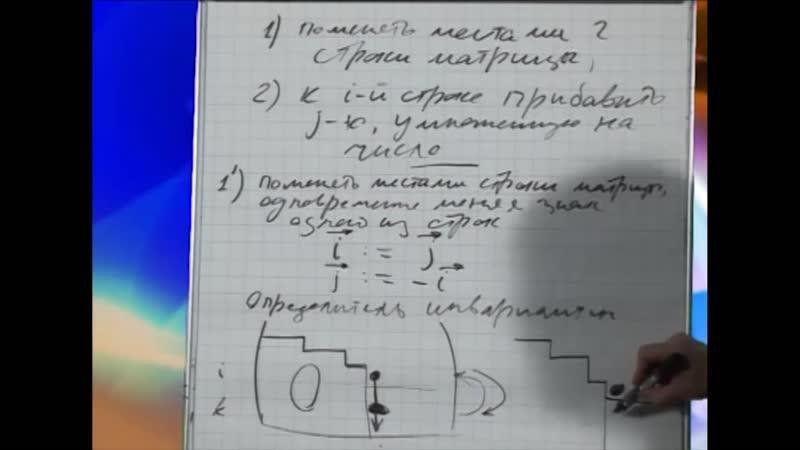 1) поменять местами 2
строки матрицы,
2) к i-й строке прибавить
j-ю, умноженную на
число
1') поменять местами строки матрицы,
одновременно меняя знак
одного из строк
i := j
j := -i
Определитель инвариантен
i
0
k